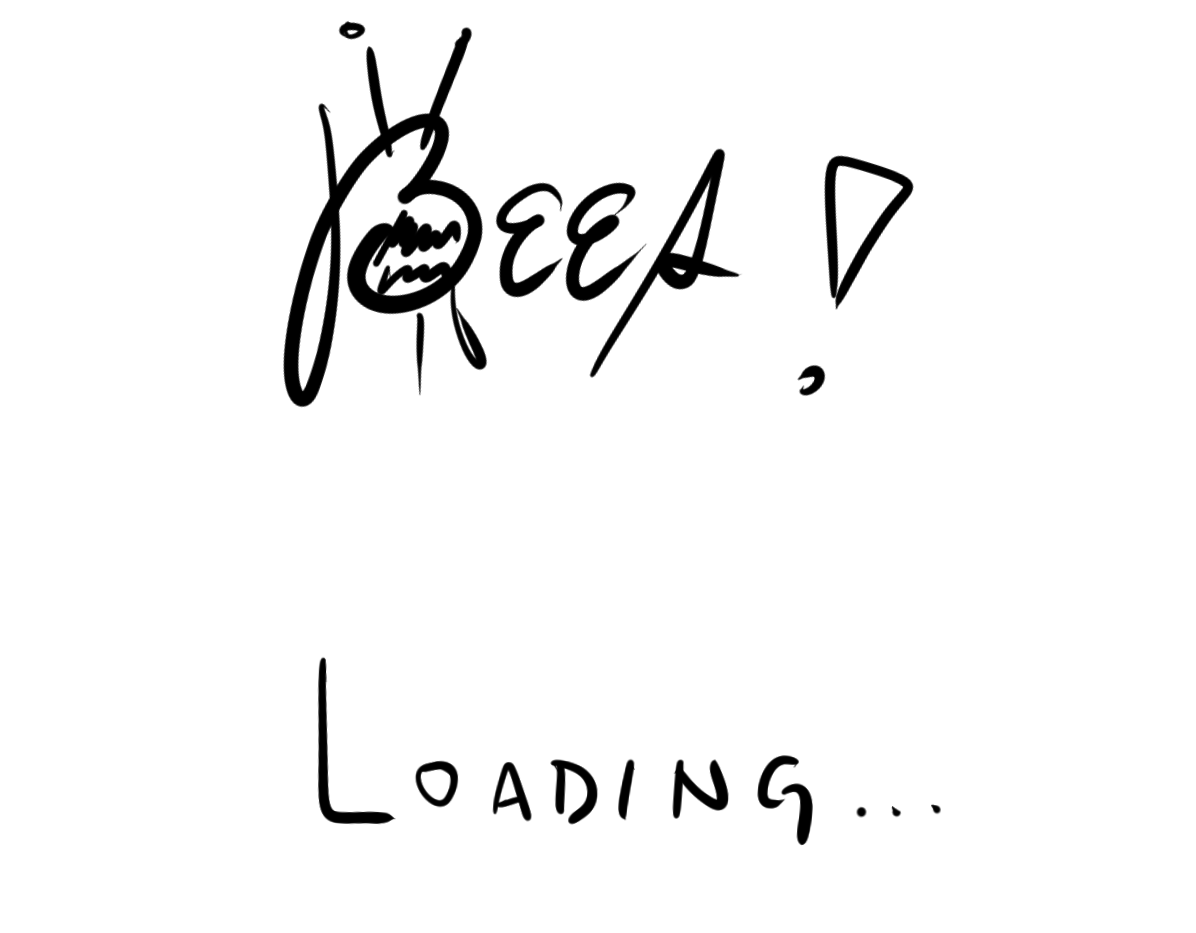 BEES!
LOADING...